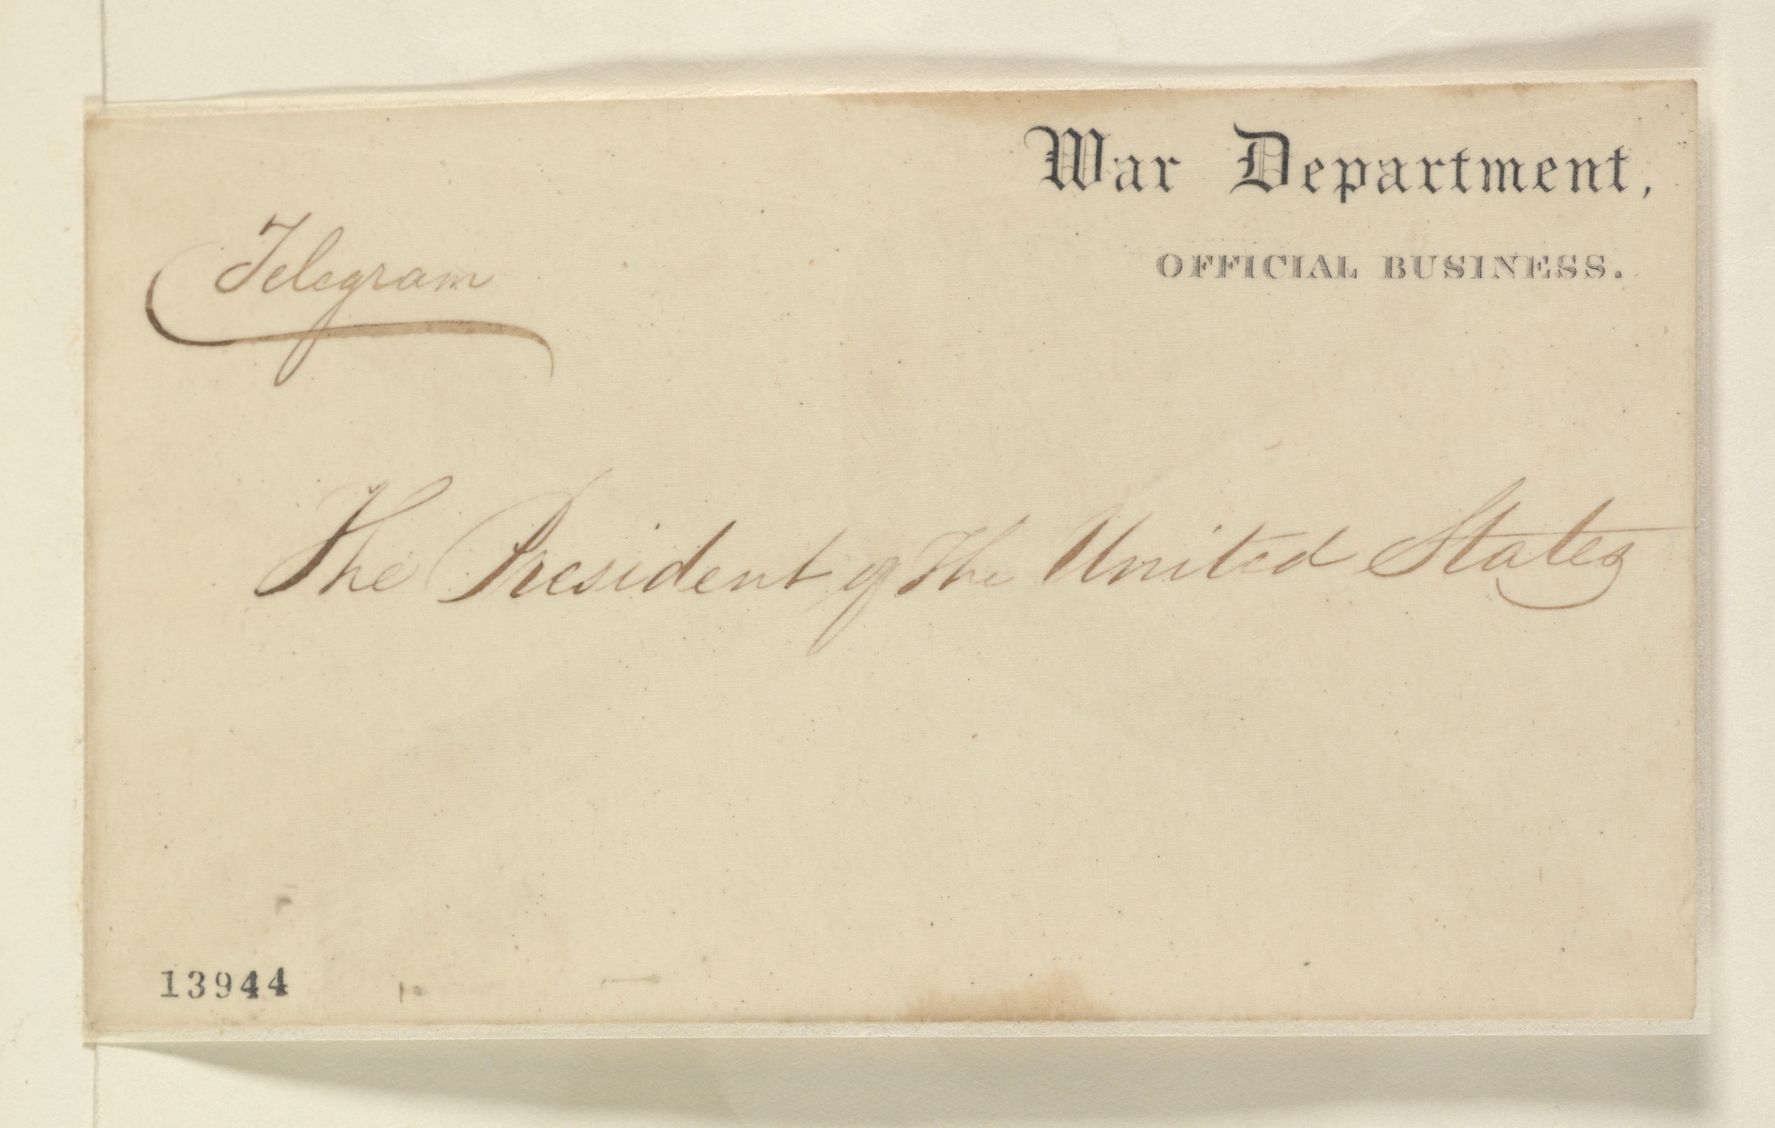 War Department,
OFFICIAL BUSINESS.
Telegram
The President of the United States
13944